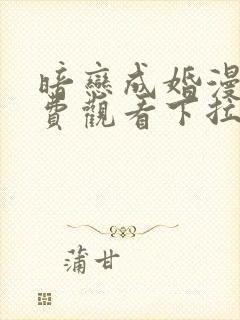 暗戀成婚漫
費觀看下拉
蒲甘